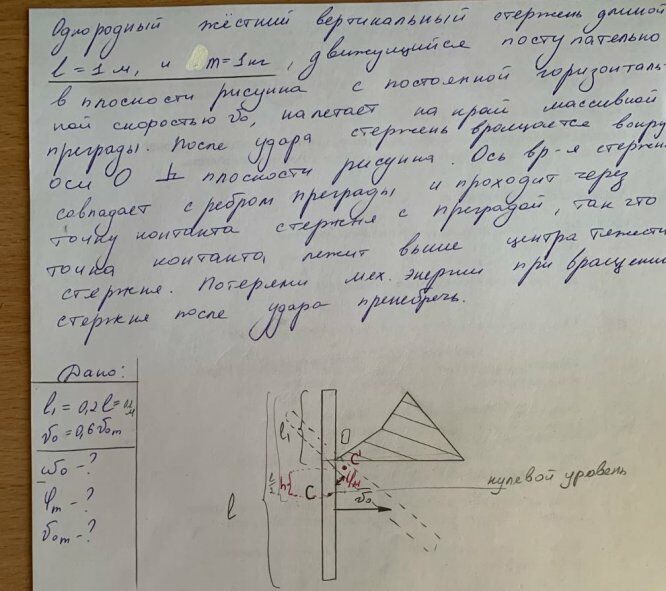 Однородный жёсткий вертикальный стержень длиной
l = 1 м, и m = 1 кг, движущийся поступательно
в плоскости рисунка с постоянной горизонталь-
ной скоростью v₀, налетает на край массивной
преграды. После удара стержень вращается вокруг
оси O ⊥ плоскости рисунка. Ось вр-я стержня
совпадает с ребром преграды и проходит через
точку контакта стержня с преградой, так что
точка контакта лежит выше центра тяжести
стержня. Потерями мех. энергии при вращении
стержня после удара пренебречь.
Дано:
l₁ = 0,2 l = 0,2 м
v₀ = 0,6 v₀m
ω₀ - ?
φm - ?
v₀m - ?
l
l/2
h
l₁
O
C'
φm
C
v₀
нулевой уровень